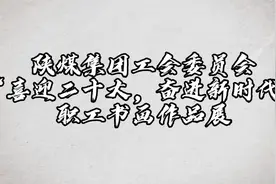 陕煤集团工会委员会
“喜迎二十大，奋进新时代
职工书画作品展